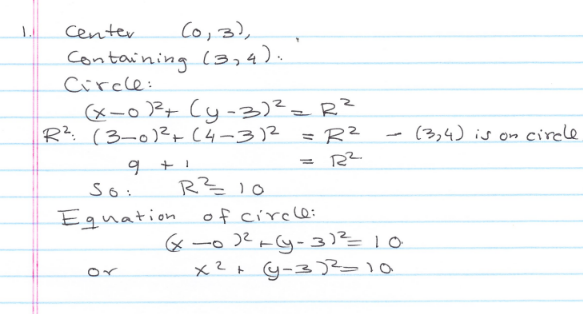 1. Center (0, 3),
Containing (3, 4).
Circle:
(x-0)² + (y-3)² = R²
R²: (3-0)² + (4-3)² = R² - (3,4) is on circle
9 + 1 = R²
So: R² = 10
Equation of circle:
(x-0)² + (y-3)² = 10
or x² + (y-3)² = 10